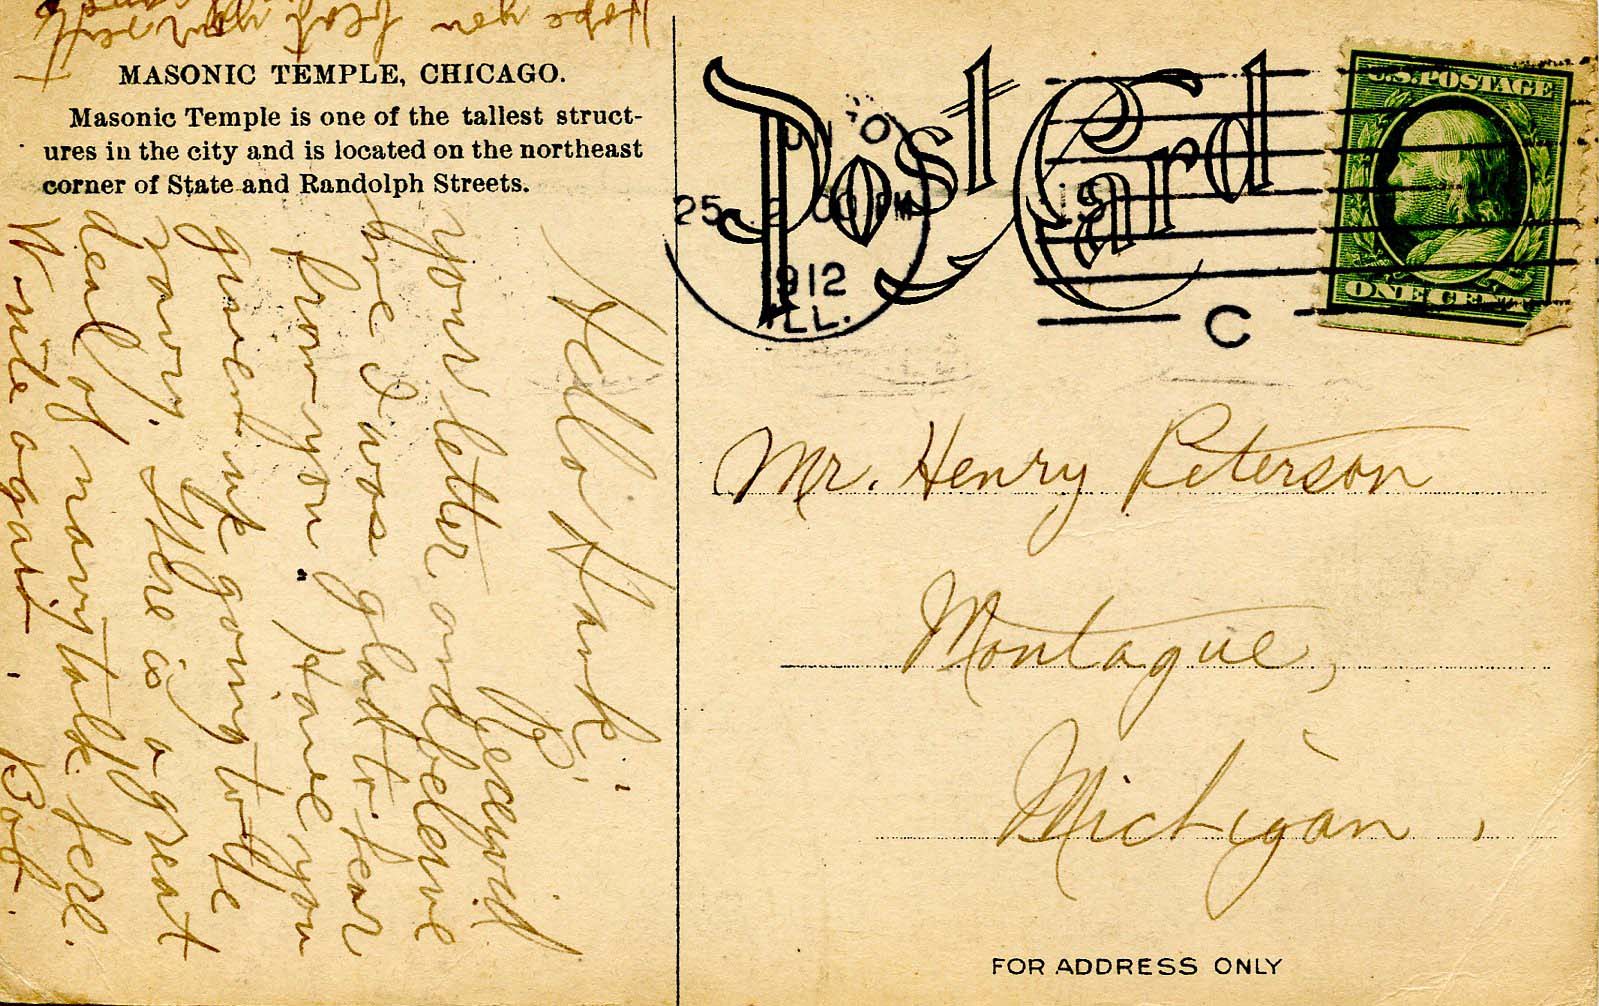 MASONIC TEMPLE, CHICAGO.
Masonic Temple is one of the tallest struct-
ures in the city and is located on the northeast
corner of State and Randolph Streets.
Post Card
25
PM
1912
ILL.
C
U.S. POSTAGE
ONE CENT
Mr. Henry Peterson
Montague,
Michigan,
FOR ADDRESS ONLY
Hello Hank:
Received
your letter and beleive
me I was glad to hear
from you. Have you
given up going to the
navy. There is a great
deal of navy talk here.
Write again.
Bob.
Hope you